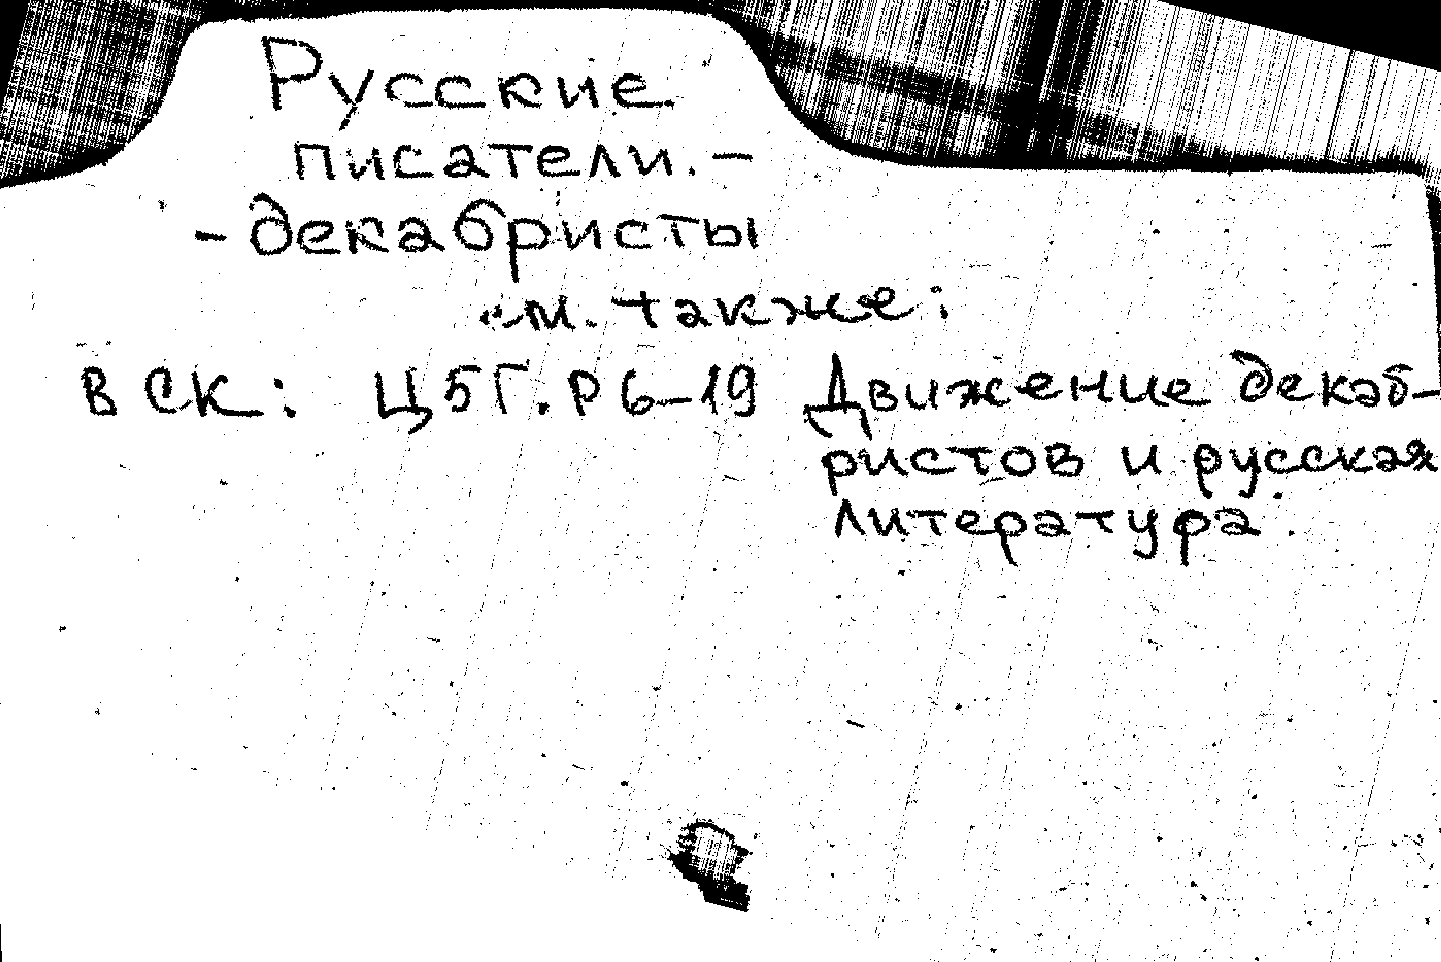 Русские
писатели. -
- декабристы
см. также:
в СК: Ц5Г.Р6-19 Движение декаб-
ристов и русская
литература.